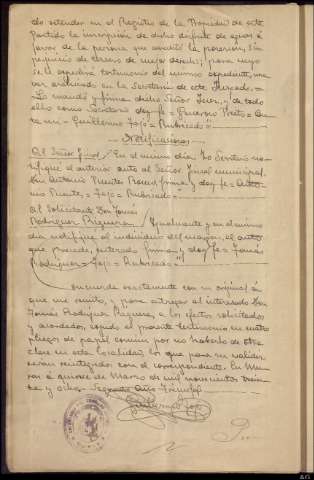 do extender en el Registro de la Propiedad de este
partido la inscripción de dicho disfrute de aguas á
favor de la persona que acreditó la posesion, sin
perjuicio de tercero de mejor derecho; para cuyo
se le expedirá testimonio del mismo expediente, una
vez archivado en la Secretaria de este Juzgado.=
Lo mandó y firma dicho Señor Juez, y de todo
ello como Secretario doy fe= = An
te mi= Guillermo = Rubricado=
Notificaciones
Al Señor Fiscal / En el mismo dia, Yo Secretario no
tifiqué el anterior auto al Señor Fiscal municipal
Don Antonio Puentes firma y doy fe= Anto
nio Puente= = Rubricado=
Al Solicitante Don Tomás
Rodriguez / Igualmente y en el mismo
dia notifiqué al individuo del margen, el auto
que precede, enterado firma y doy fe= Tomás
Rodriguez= = Rubricado="
Concuerda exactamente con su original á
que me remito, y para entregar al interesado Don
Tomás Rodriguez á los efectos solicitados
y acordados, expido el presente testimonio en cuatro
pliegos de papel comun por no haberlo de otra
clase en esta localidad, los que para su validez
serán reintegrados con el correspondiente. En
á quince de Marzo de mil novecientos trein
ta y ocho= Segundo Año Triunfal
Guillermo